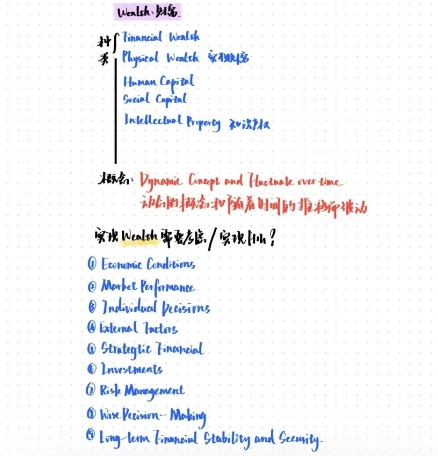 Wealth: 财富.
种类
Financial Wealth
Physical Wealth 实物财富
Human Capital
Social Capital
Intellectual Property 知识产权
概念: Dynamic Concept and Fluctuate over time.
动态的概念和随着时间的推移而波动
实现 Wealth 需要考虑/实现
① Economic Conditions
② Market Performance
③ Individual Decisions
④ External Factors
⑤ Strategtic Financial
⑥ Investments
⑦ Risk Management
⑧ Wise Decision-Making
⑨ Long-term Financial Stability and Security.